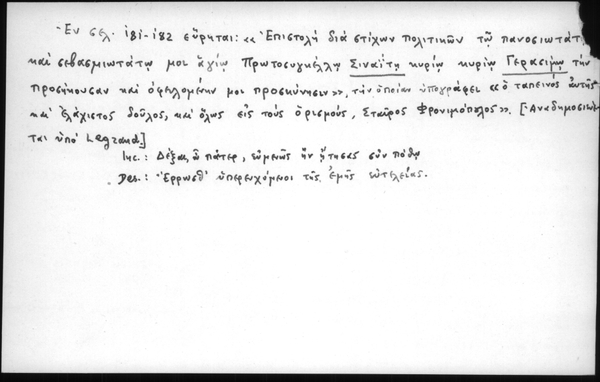 Ἐν σελ. 181-182 εὕρηται: «Ἐπιστολὴ διὰ στίχων πολιτικῶν τῷ πανοσιωτάτ
καὶ σεβασμιωτάτῳ μοι ἁγίῳ Πρωτοσυγκέλλῳ Σιναΐτῃ κυρίῳ κυρίῳ Γερασίμῳ τὴν
προσήκουσαν καὶ ὀφειλομένην μοι προσκύνησιν», τὴν ὁποίαν ὑπογράφει «ὁ ταπεινὸς αὐτῆς
κ' ἐλάχιστος δοῦλος, καὶ ὅλως εἰς τοὺς ὁρισμούς, Σταῦρος Φρονιμόπολος». [Ἀναδημοσιεύε
ται ὑπὸ Legrand.]
Inc.: Δέξαι, ὦ πάτερ, εὐμενῶς ἣν ᾔτησας σὺν πόθῳ
Des.: Ἔρρωσθ' ὑπερευχόμενοι τῆς ἐμῆς εὐτελείας.